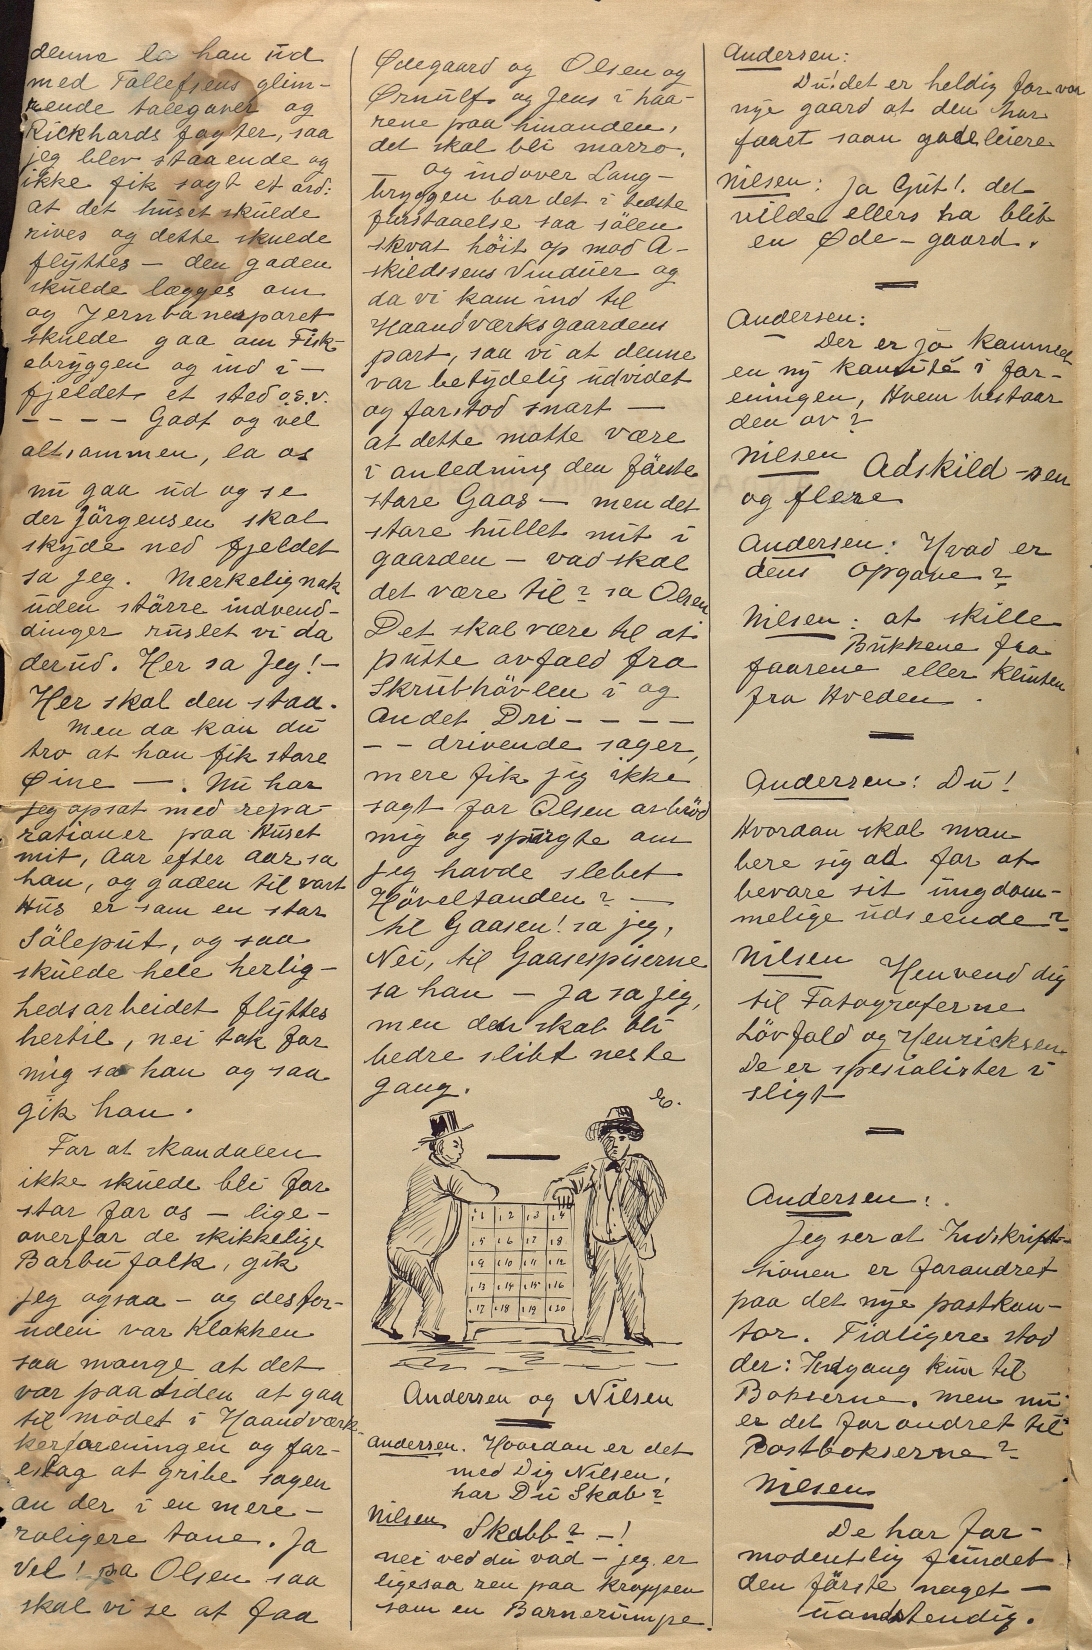 denne la han ud
med Tallefsens glim-
rende talegaver og
Rickhards fagter, saa
jeg blev staaende og
ikke fik sagt et ord:
at det huset skulde
rives og dette skulde
flyttes — den gaden
skulde lægges om
og Jernbanesporet
skulde gaa om Fisk-
ebryggen og ind i —
fjeldet et sted o.s.v.
— — — — Godt og vel
altsammen, la os
nu gaa ud og se
der Jörgensen skal
skyde ned fjeldet
sa jeg. Merkelig nok
uden större indvend-
dinger ruslet vi da
derud. Her sa Jeg! —
Her skal den staa.
Men da kan du
tro at han fik store
Øine — . Nu har
jeg opsat med repa-
rationer paa Huset
mit, Aar efter aar sa
han, og gaden til vart
Hus er som en stor
Söleput, og saa
skulde hele herlig-
hedsarbeidet flyttes
hertil, nei tak for
mig sa han og saa
gik han.
For at skandalen
ikke skulde bli for
stor for os — lige-
overfor de skikkelige
Barbufolk, gik
jeg ogsaa — og desfor-
uden var Klokken
saa mange at det
var paa tiden at gaa
til mödet i Haandværk-
kerforeningen og for-
eslag at gribe sagen
an der i en mere —
roligere tone. Ja
Vel! sa Olsen saa
skal vi se at faa
Ødegaard og Olsen og
Ørnulf og Jens i haa-
rene paa hinanden,
det skal bli morro.
— og indover Lang-
bryggen bar det i bedste
forstaaelse saa sölen
skvat höit op mod A-
skildssens Vinduer og
da vi kom ind til
Haandværksgaardens
port, saa vi at denne
var betydelig udvidet
og forstod snart —
at dette motte være
i anledning den förste
store Gaas — men det
store hullet mit i
gaarden — vad skal
det være til? sa Olsen
Det skal være til at
putte avfald fra
Skrubhövlen i og
andet Dri — — — —
— — drivende sager,
mere fik jeg ikke
sagt for Olsen avbröd
mig og spurgte om
jeg havde slebet
Höveltanden? —
til Gaasen! sa jeg,
Nei, til Gaasespiserne
sa han — Ja sa jeg,
men den skal bli
bedre slibt neste
gang.
E.
1 2 3 4
5 6 7 8
9 10 11 12
13 14 15 16
17 18 19 20
Andersen og Nilsen
Andersen. Hvordan er det
med Dig Nilsen,
har Du Skab?
Nilsen Skabb? — !
nei ved du vad — jeg er
ligesaa ren paa kroppen
som en Barnerumpe.
Andersen:
Du! det er heldig for vor
nye gaard at den har
faaet saan gode leiere
Nilsen: Ja Gut! det
vilde ellers ha blit
en Øde-gaard.
Andersen:
Der er jo kommed
en ny komité i for-
eningen, Hvem bestaar
den av?
Nilsen Adskild-sen
og flere
Andersen: Hvad er
dens opgave?
Nilsen: at skille
Bukkene fra
faarene eller klinten
fra Hveden.
Andersen: Du!
Hvordan skal man
bere sig ad for at
bevare sit ungdom-
melige udseende?
Nilsen Henvend dig
til Fotograferne
Lövfold og Henricksen
De er spesialister i
sligt
Andersen:
Jeg ser at Indskript-
sionen er forandret
paa det nye postkon-
tor. Tidligere stod
der: Indgang kun til
Bokserne. men nu
er det forandret til
Postbokserne?
Nilsen
De har for-
modentlig fundet
den förste noget —
uanstendig.